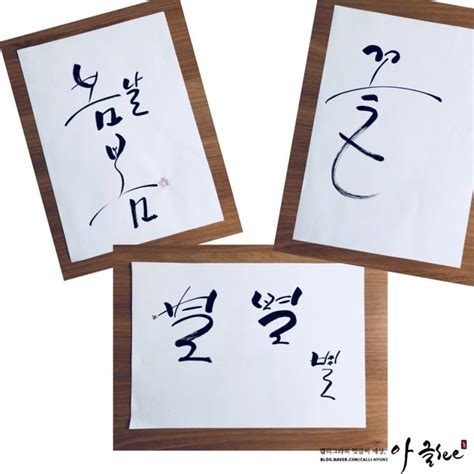 봄날
봄
꽃
별 별
별
캘리그라피 멋글씨 세상,
BLOG.NAVER.COM/CALLI-HYUN2
아글see